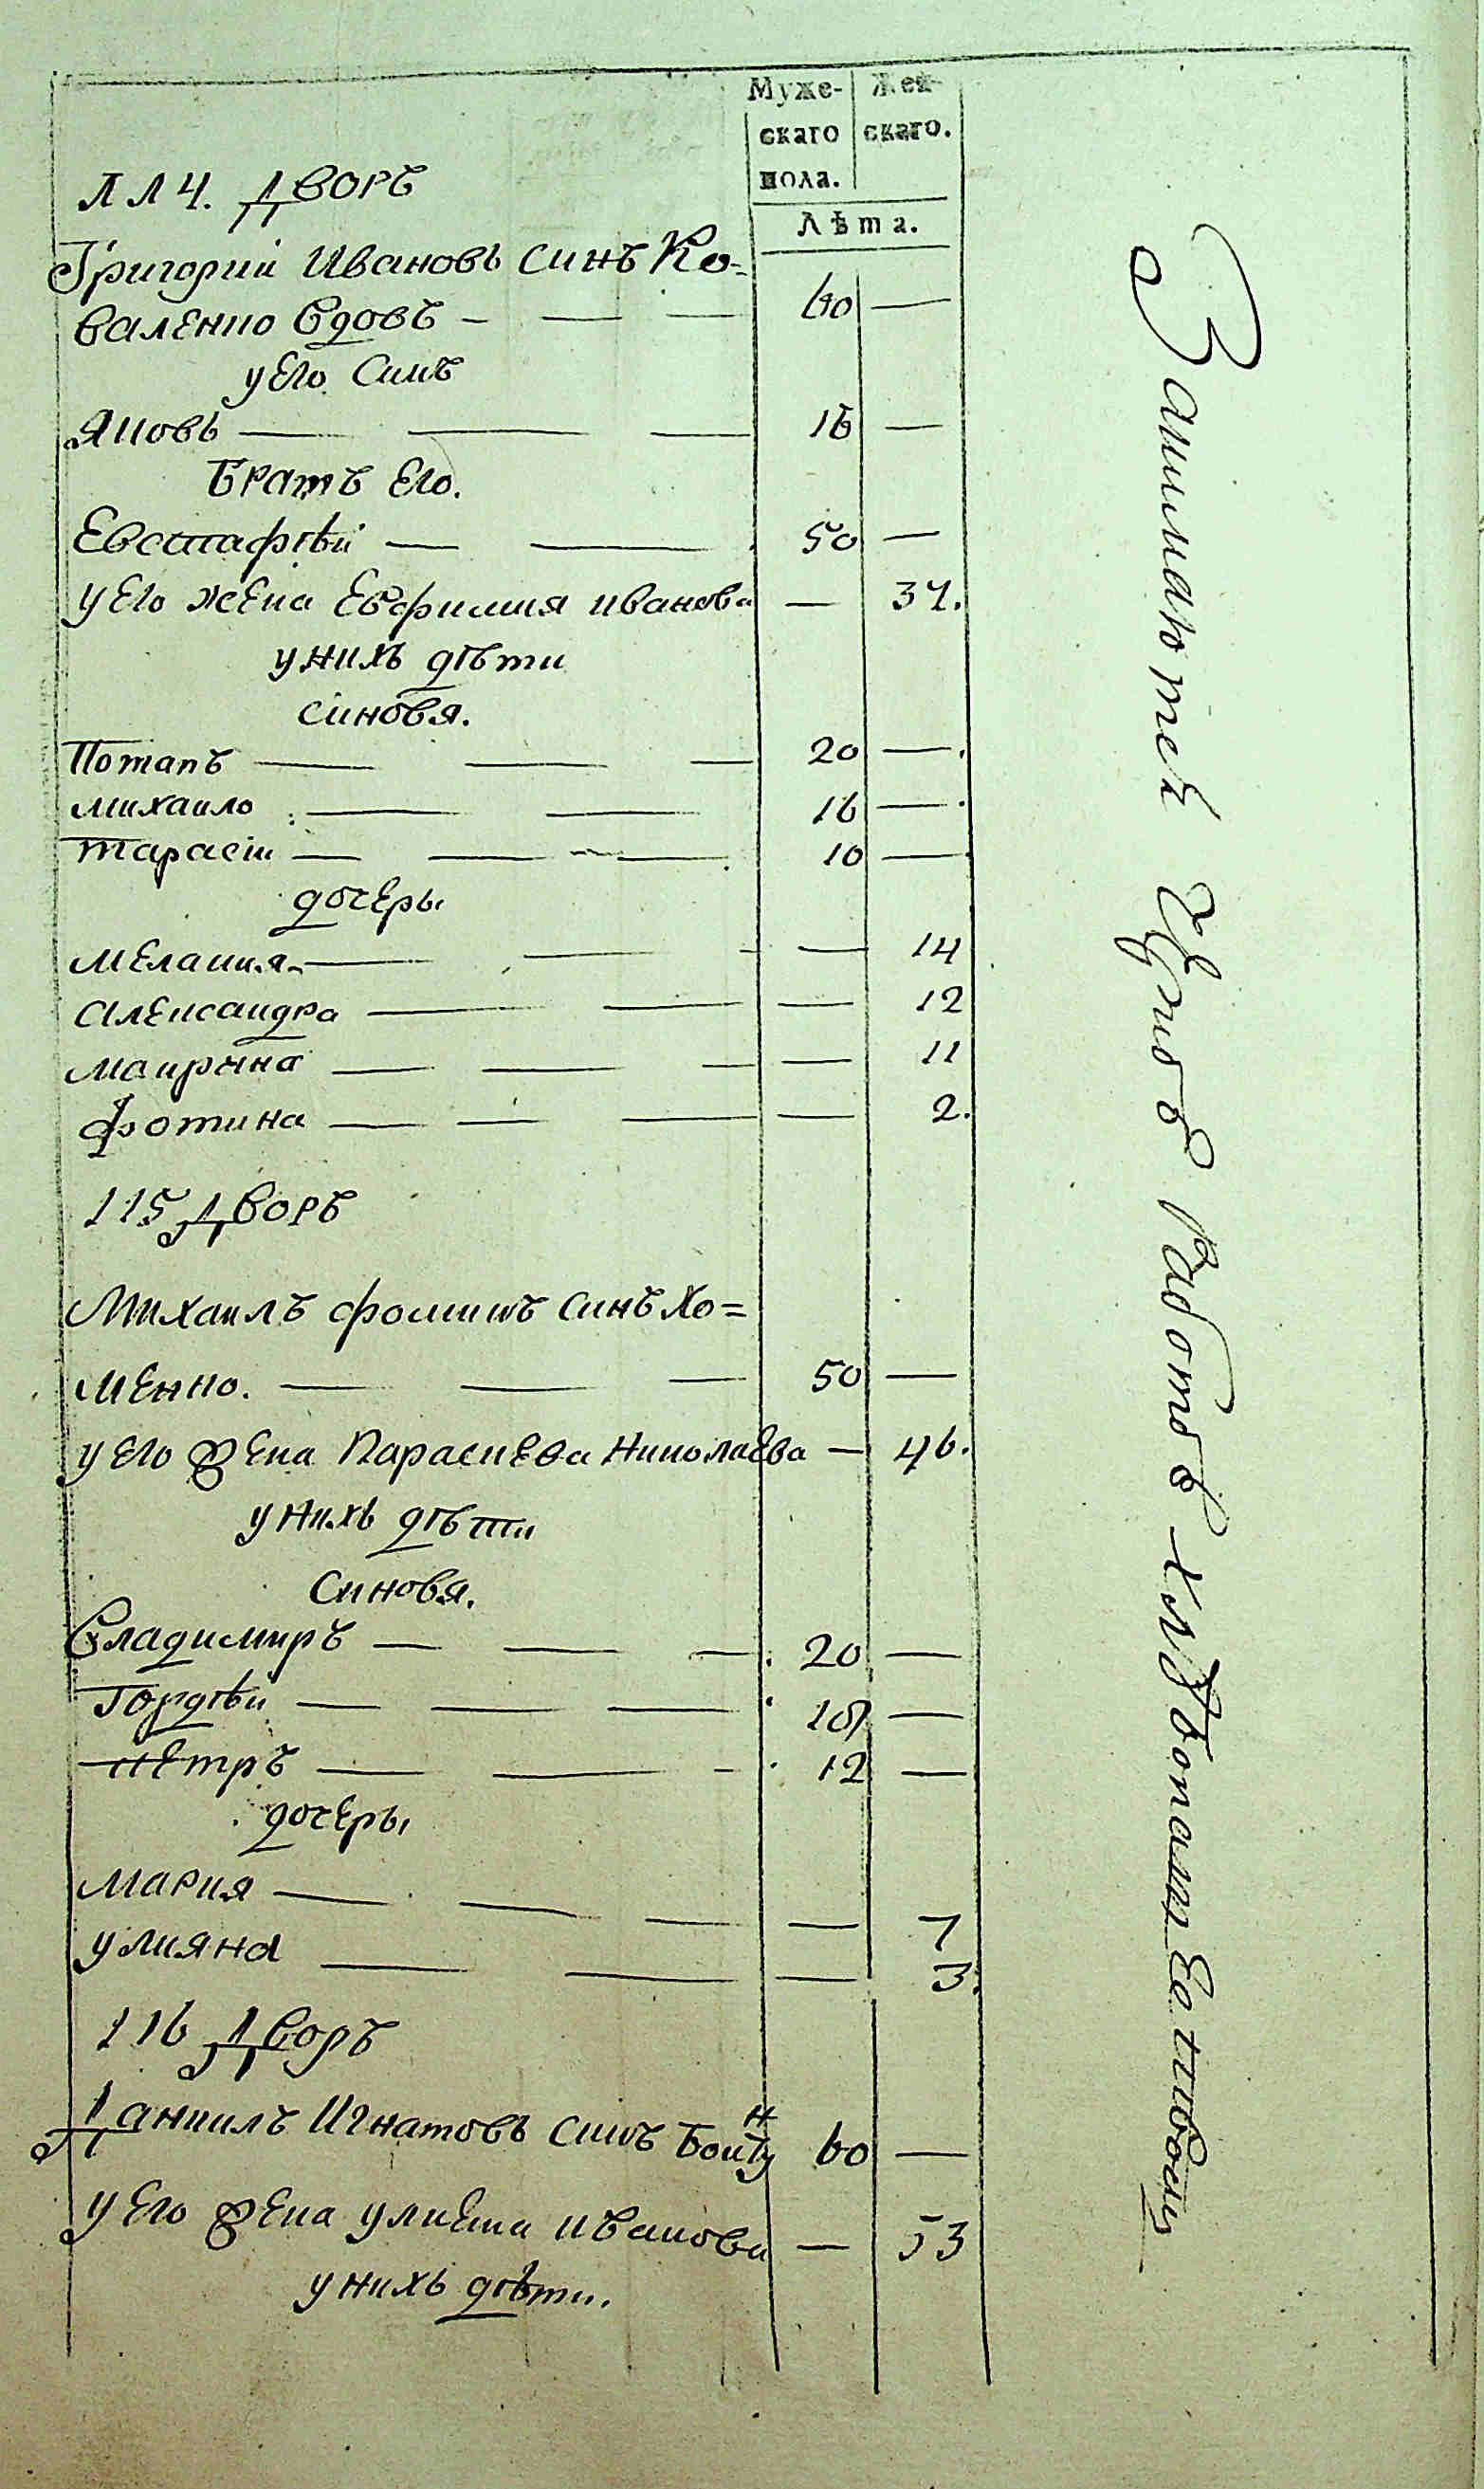 Муже- Жен-
скаго скаго.
пола.
Лѣта.
114. Дворъ
Григорий Ивановъ синъ Ко-
валенко Вдовъ — — — 60 —
у Его Синъ
Яковъ — — — 16 —
Братъ Его.
Евстафѣй — — 50 —
у Его жена Евфимия иванова — 37.
у нихъ дѣти
синовя.
Потапъ — — — 20 —
михаило — — 16 —
тарасій — — — 10 —
дочеры
мелания — — — 14
александра — — — 12
маирына — — — — 11
фотина — — — — 2.
115 Дворъ
Михаилъ фоминъ синъ Хо=
менко. — — — 50 —
у Его жена Параскева Николаева — 46.
у нихъ дѣти
синовя.
Владимиръ — — — 20 —
Гордѣй — — — 18 —
петръ — — — 12 —
дочеры
мария — — — — 7
улияна — — — 3.
116 Дворъ
Даниилъ Игнатовъ синъ 60 —
у Его жена улиана иванова — 53
у нихъ дѣти.
Занимаются